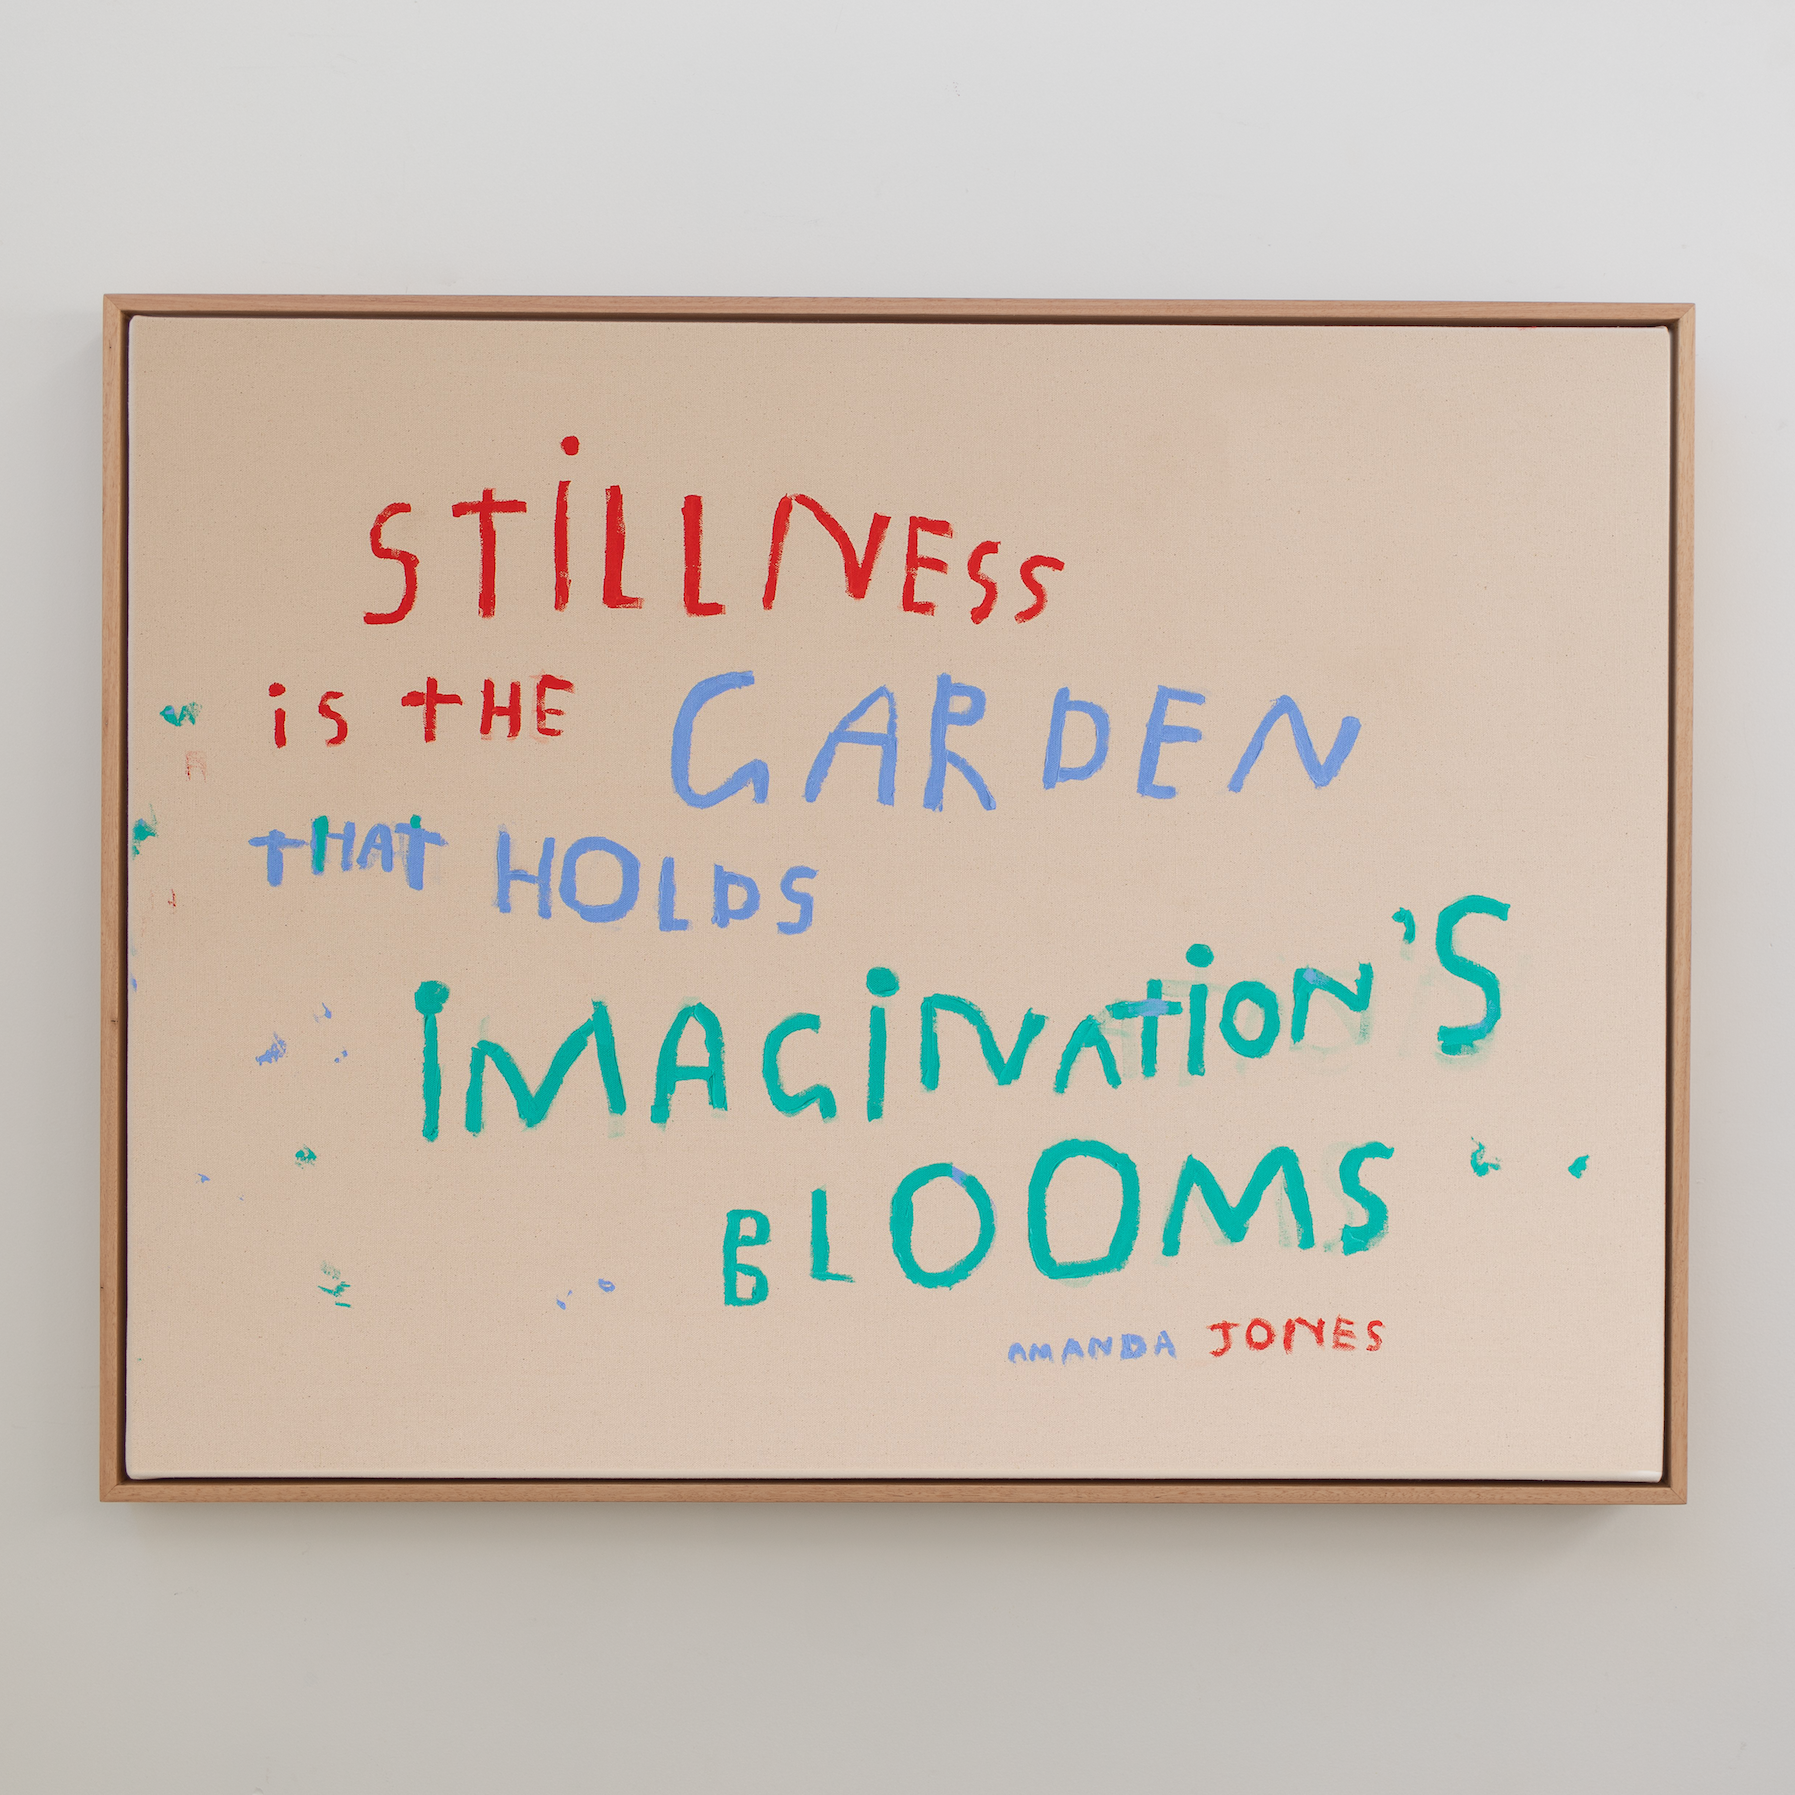 STiLLNESS
iS tHE GARDEN
tHAT HOLDS
iMAGiNATiON'S
BLOOMS
AMANDA JONES